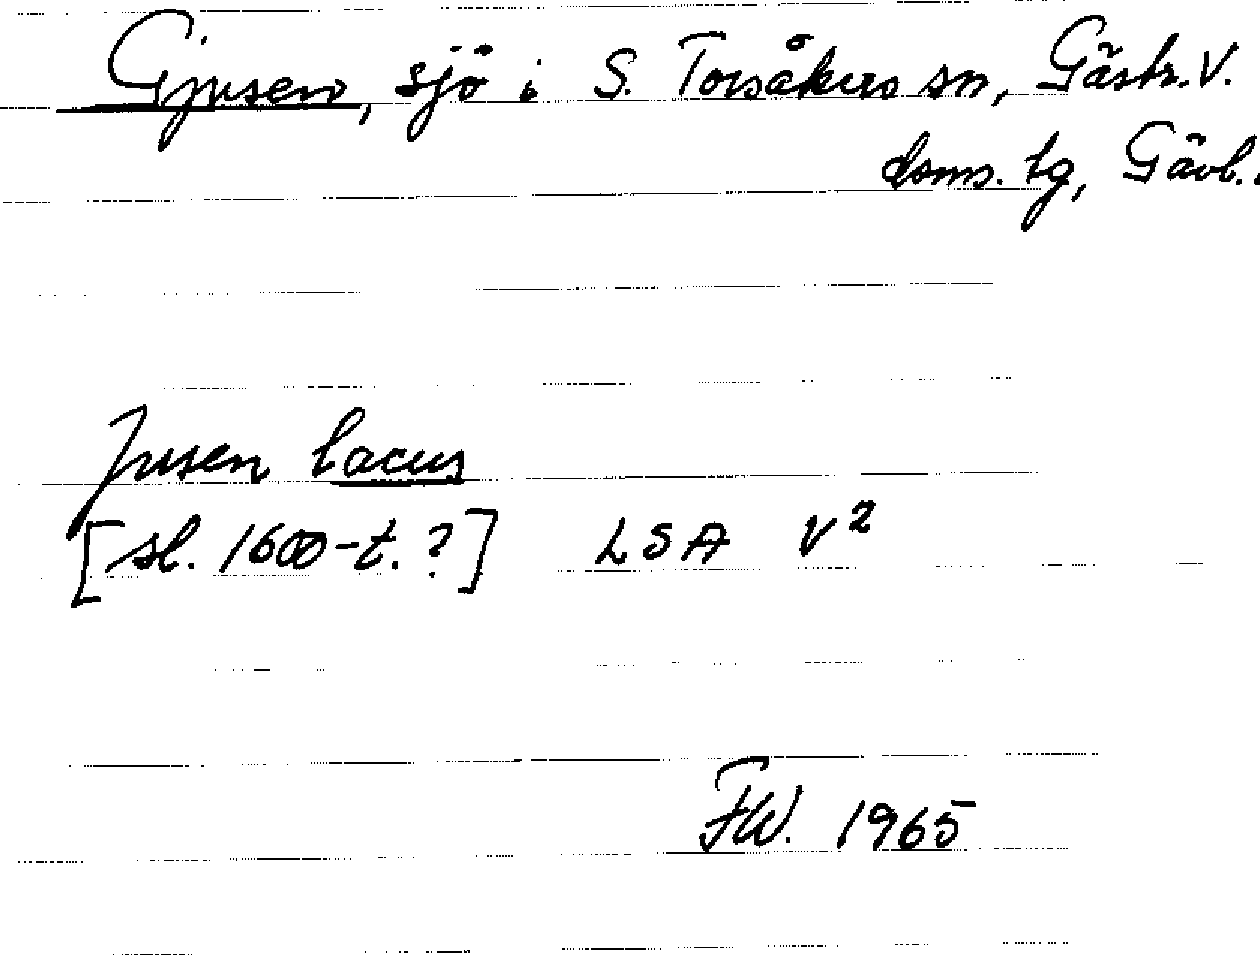 Gjusen, sjö i S. Torsåkers sn, Gästr. V.
doms. tg, Gävl.
Jusen lacus
[sl. 1600-t.?] LSA V²
FW. 1965